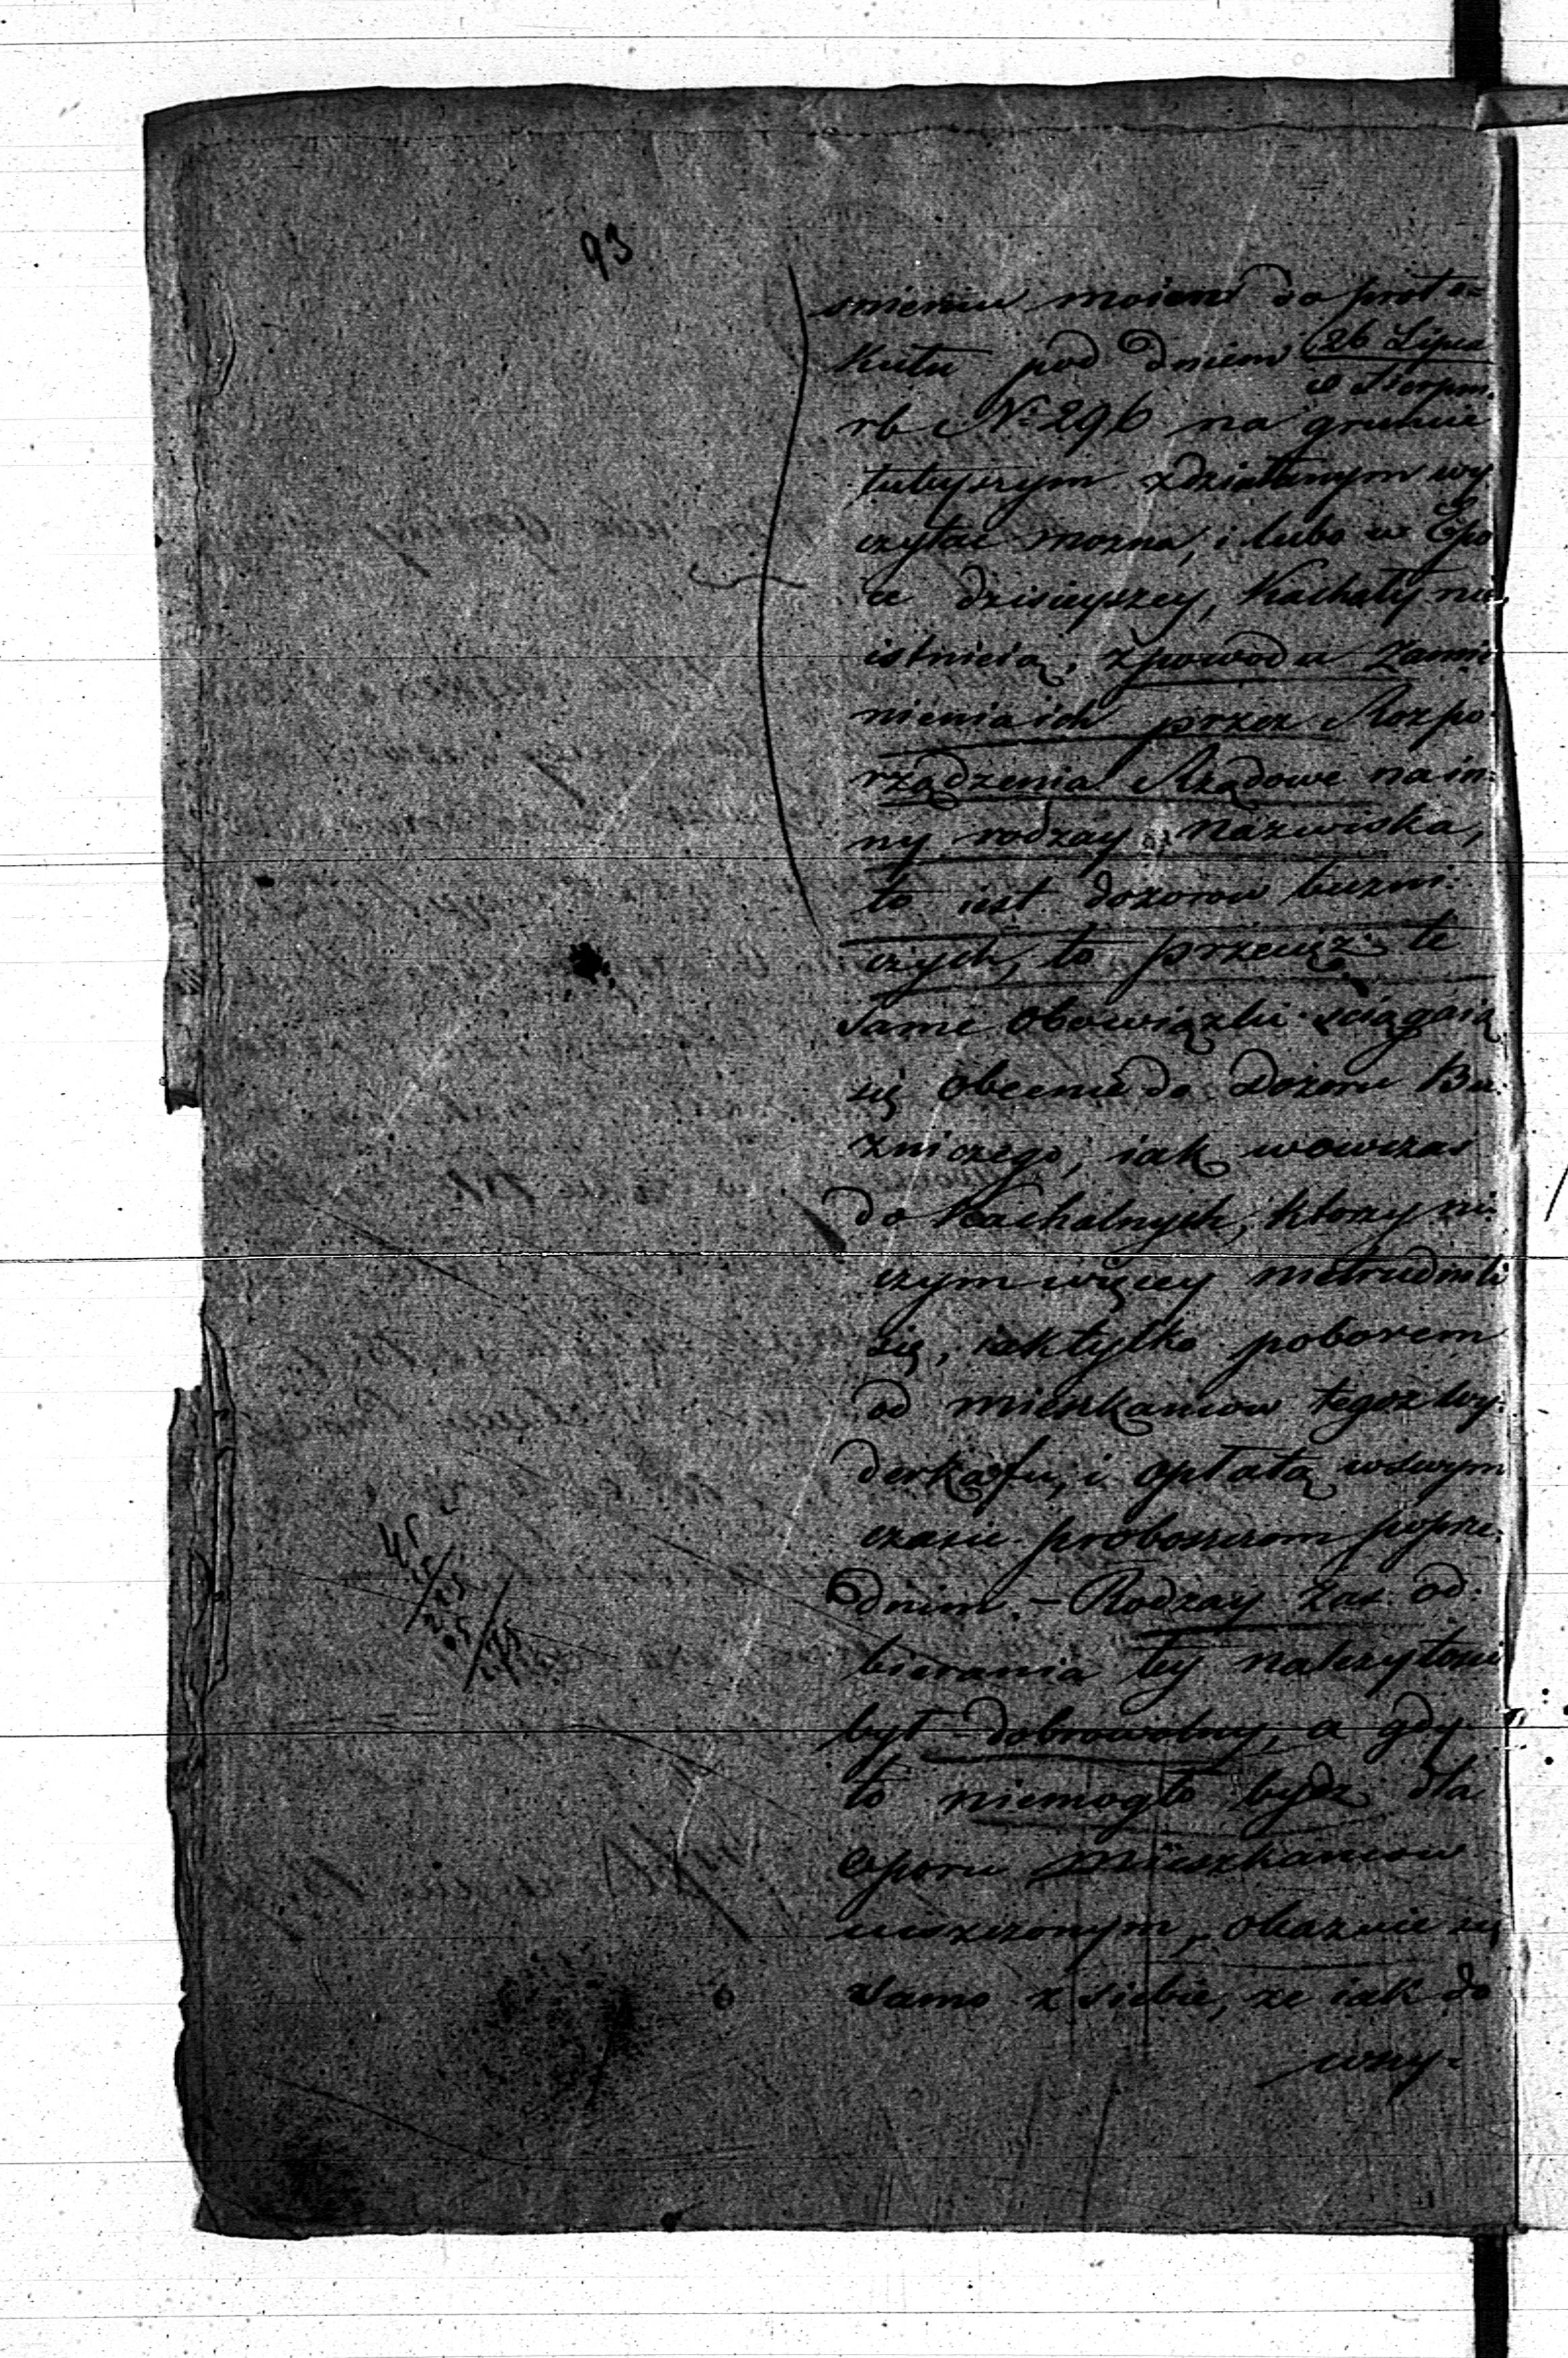 93
śnieniu moiem do proto=
kułu pod dniem 26 Lipca
Sierpn.
rb N. 296 na gruncie
tuteyszym zdziałanym wy
czytać można, i lubo w Epo
ce dzisieyszey, Kachały nie
istnieią, z powodu zamie
nienia ich przez Rozpo
rządzenia Rządowe na in=
ny rodzay nazwiska,
to iest dozorow buzni=
czych, to przeciż te
same obowiązki sciągaią
się obecnie do Dozoru Bu=
zniczego, iak wowczas
do Kachalnych, ktorzy ni=
czym więcey nietrudnili
się, iak tylko poborem
od mieszkancow tegoż
i opłatą w swym
czasie proboszczom poprze=
dnim. – Rodzay zas od=
bierania tey należytosci
był dobrowolny, a gdy
to niemogło bydz dla
oporu Mieszkancow
uiszczonym, okazuie się
samo z siebie, ze iak do
wszy=